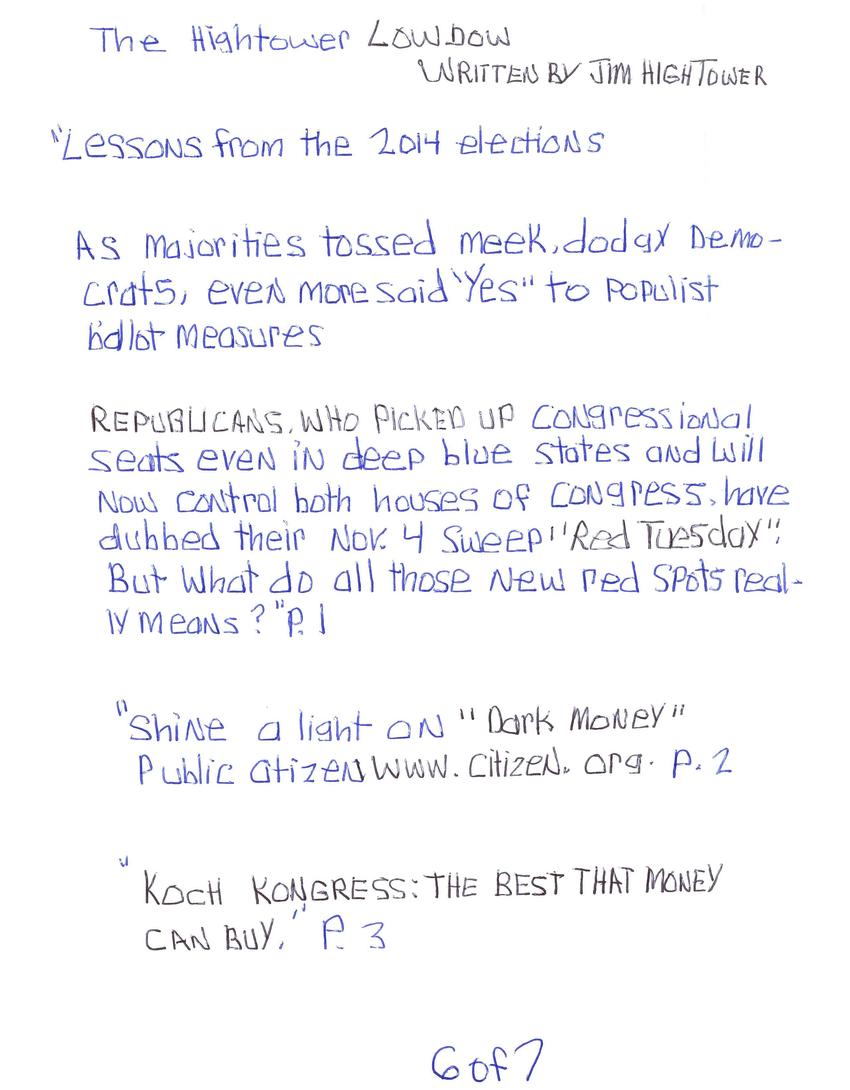 The Hightower LOWDOW
WRITTEN BY JIM HIGHTOWER
"Lessons from the 2014 elections
As majorities tossed meek, dodgy Demo-
crats, even more said "Yes" to populist
ballot measures
REPUBLICANS, WHO PICKED UP Congressional
seats even in deep blue states and will
now control both houses of Congress, have
dubbed their Nov. 4 sweep "Red Tuesday".
But what do all those new red spots real-
ly means?" P. 1
"Shine a light on "Dark Money"
Public Citizen www.citizen.org. P. 2
"KOCH KONGRESS: THE BEST THAT MONEY
CAN BUY." P. 3
6 of 7